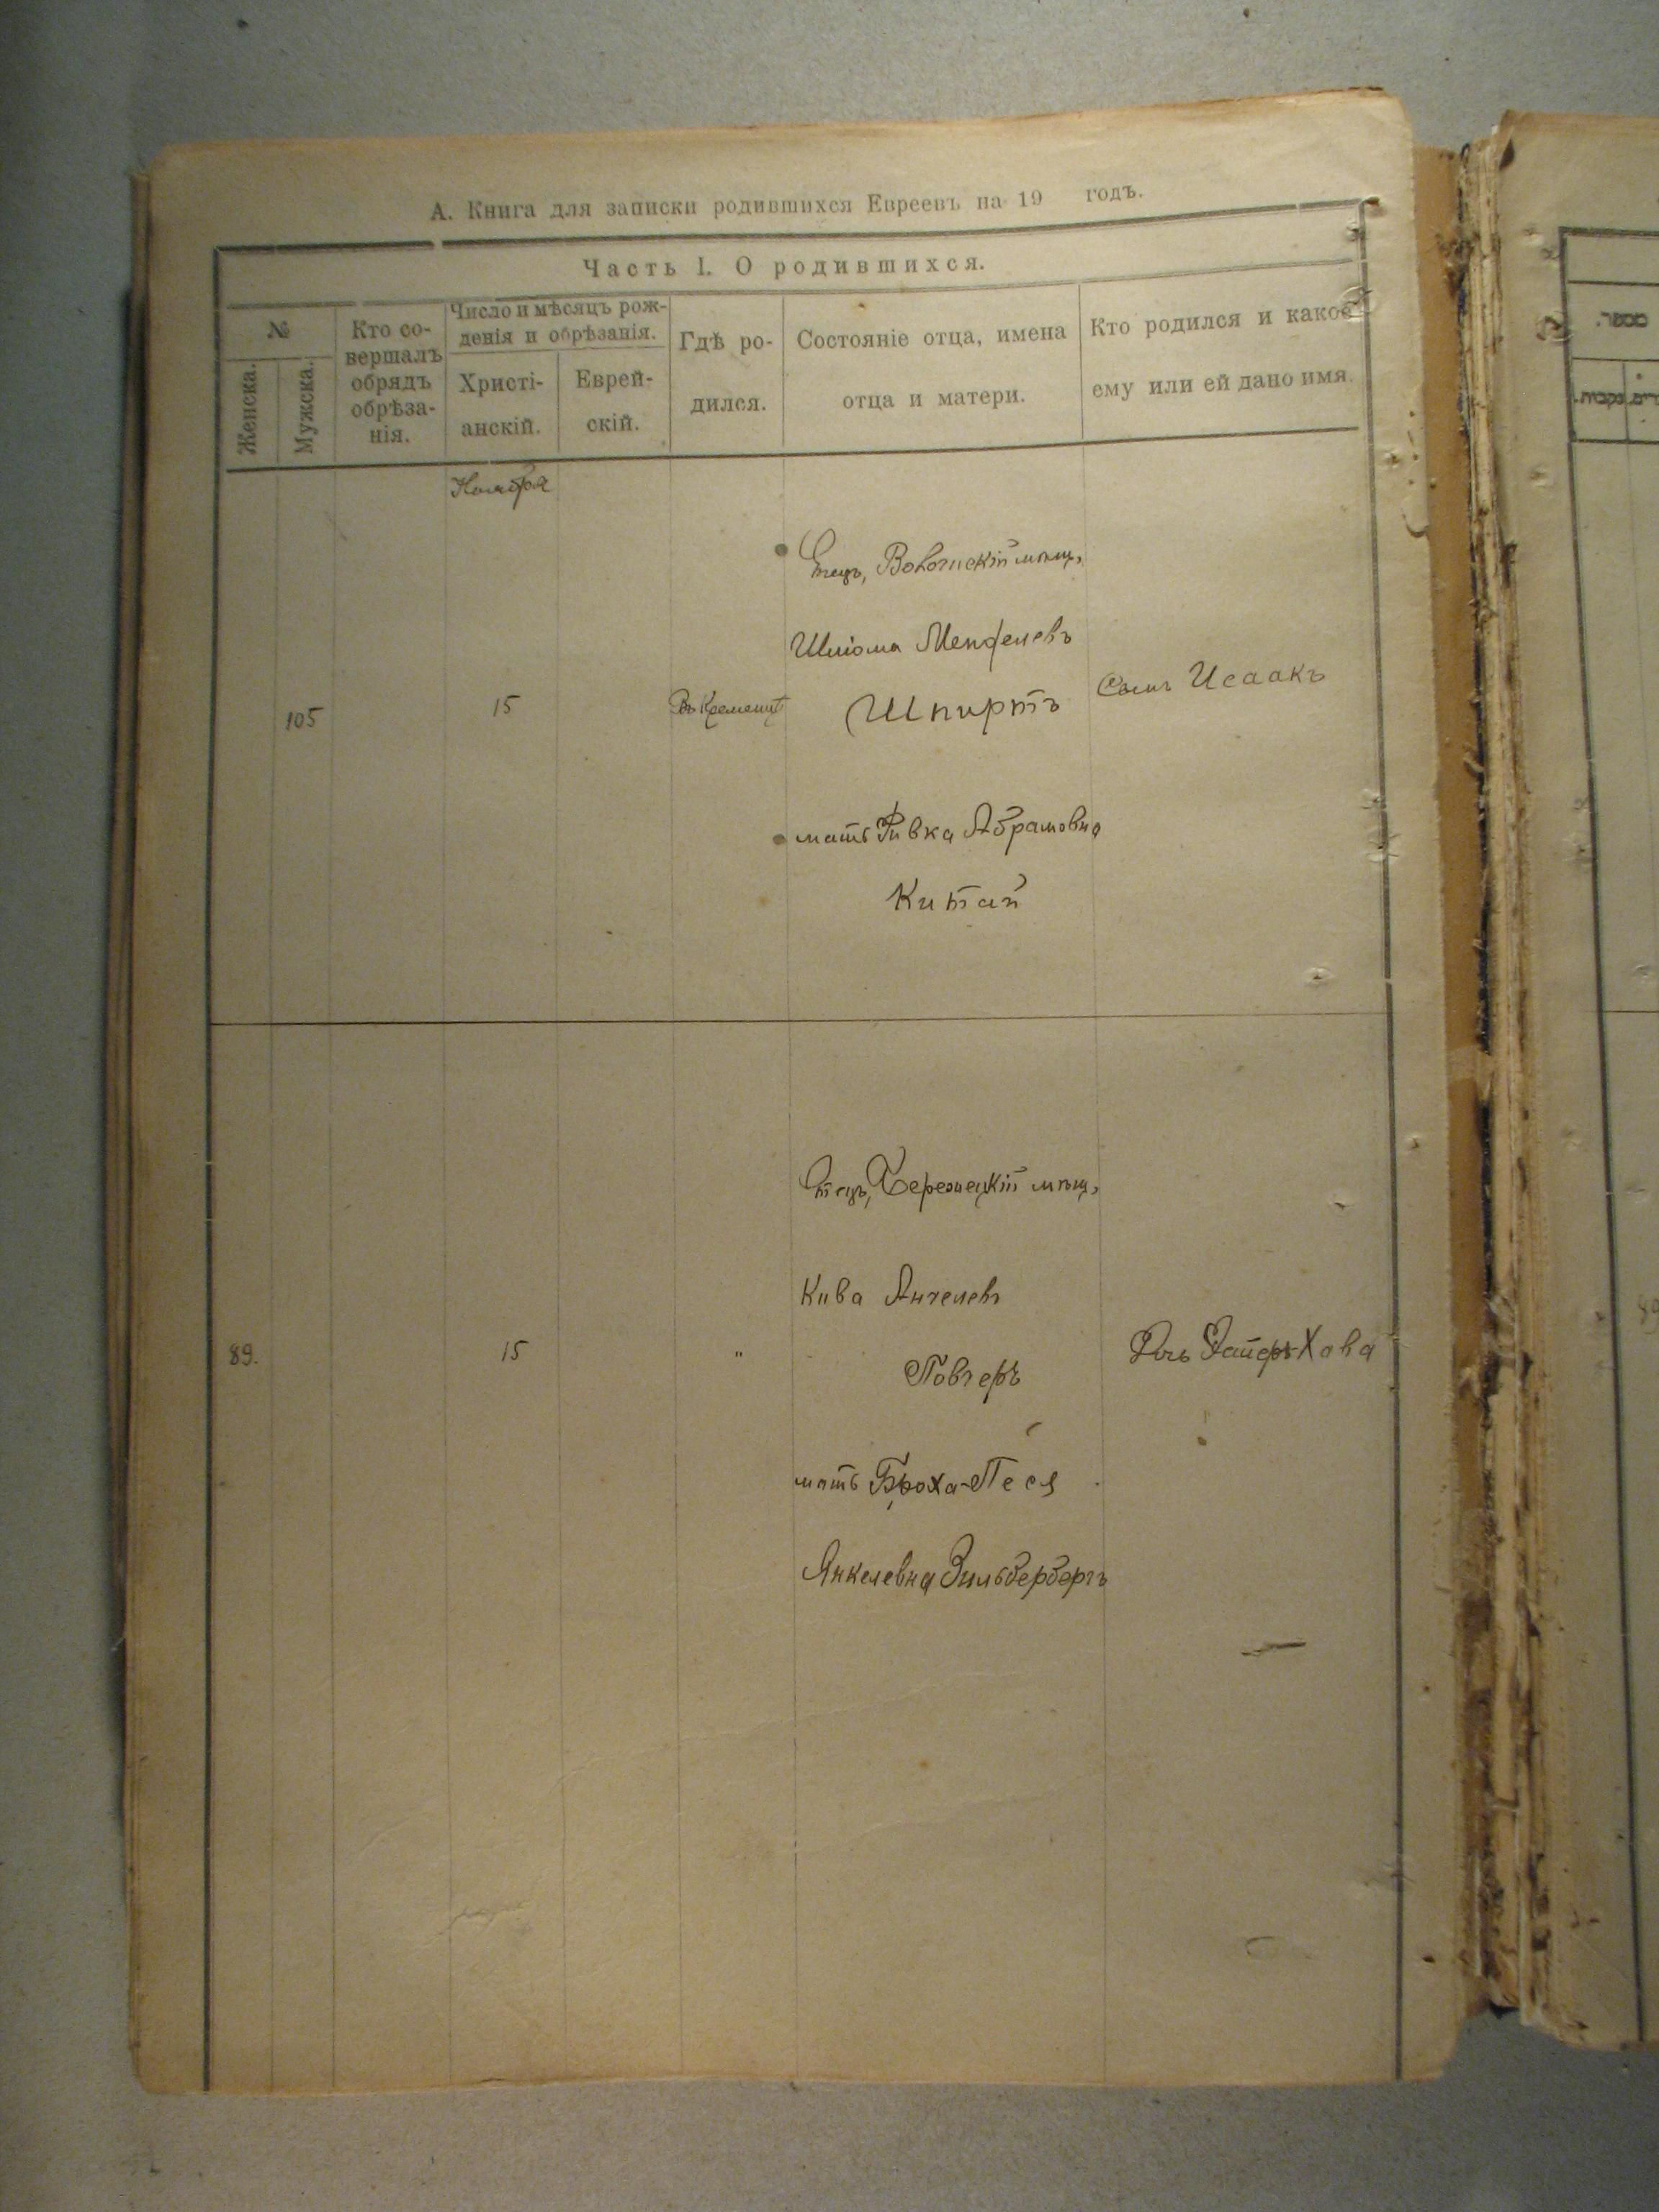 А. Книга для записки родившихся Евреевъ на 19 годъ.
Часть I. О родившихся.
№
Женска.
Мужска.
Кто со-
вершалъ
обрядъ
обрѣза-
нія.
Число и мѣсяцъ рож-
денія и обрѣзанія.
Христі-
анскій.
Еврей-
скій.
Гдѣ ро-
дился.
Состояніе отца, имена
отца и матери.
Кто родился и какое
ему или ей дано имя.
Ноября
105
15
Въ Кременц
Отецъ, мѣщ.
Шліома Менделевъ
Шпиртъ
мать Ривка Абрамовна
Китай
Сынъ Исаакъ
89.
15
"
Отецъ, мѣщ.
Кива
Повчеръ
мать Броха-Песя
Янкелевна Зильбербергъ
Дочь Хава